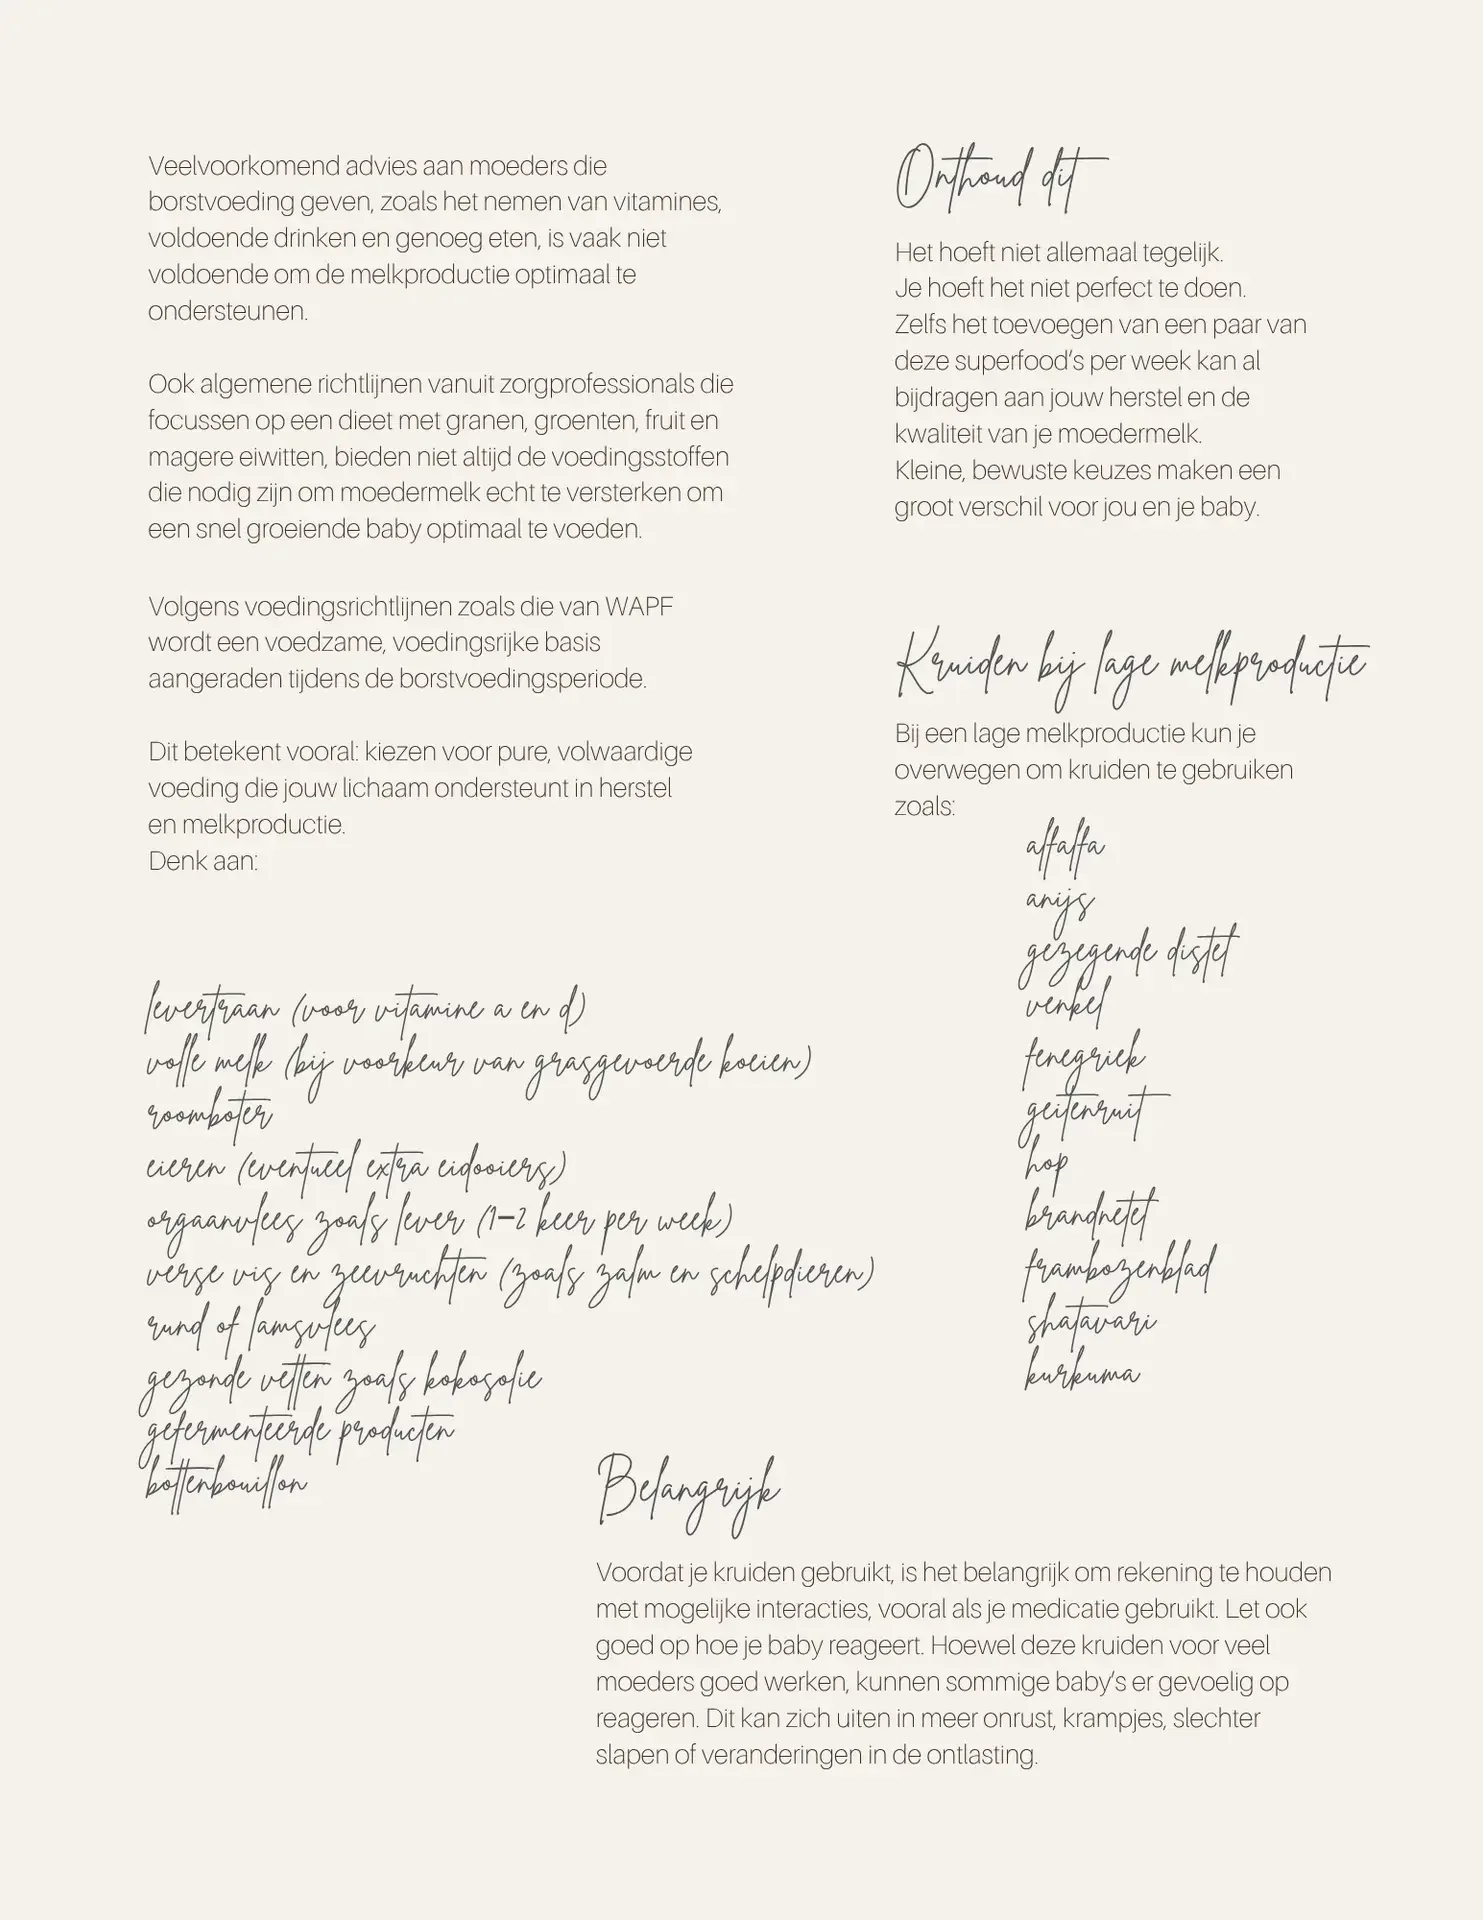 Veelvoorkomend advies aan moeders die
borstvoeding geven, zoals het nemen van vitamines,
voldoende drinken en genoeg eten, is vaak niet
voldoende om de melkproductie optimaal te
ondersteunen.
Ook algemene richtlijnen vanuit zorgprofessionals die
focussen op een dieet met granen, groenten, fruit en
magere eiwitten, bieden niet altijd de voedingsstoffen
die nodig zijn om moedermelk echt te versterken om
een snel groeiende baby optimaal te voeden.
Volgens voedingsrichtlijnen zoals die van WAPF
wordt een voedzame, voedingsrijke basis
aangeraden tijdens de borstvoedingsperiode.
Dit betekent vooral: kiezen voor pure, volwaardige
voeding die jouw lichaam ondersteunt in herstel
en melkproductie.
Denk aan:
levertraan (voor vitamine a en d)
volle melk (bij voorkeur van grasgevoerde koeien)
roomboter
eieren (eventueel extra eidooiers)
orgaanvlees zoals lever (1–2 keer per week)
verse vis en zeevruchten (zoals zalm en schelpdieren)
rund of lamsvlees
gezonde vetten zoals kokosolie
gefermenteerde producten
bottenbouillon
Onthoud dit
Het hoeft niet allemaal tegelijk.
Je hoeft het niet perfect te doen.
Zelfs het toevoegen van een paar van
deze superfood's per week kan al
bijdragen aan jouw herstel en de
kwaliteit van je moedermelk.
Kleine, bewuste keuzes maken een
groot verschil voor jou en je baby.
Kruiden bij lage melkproductie
Bij een lage melkproductie kun je
overwegen om kruiden te gebruiken
zoals:
alfalfa
anijs
gezegende distel
venkel
fenegriek
geitenruit
hop
brandnetel
frambozenblad
shatavari
kurkuma
Belangrijk
Voordat je kruiden gebruikt, is het belangrijk om rekening te houden
met mogelijke interacties, vooral als je medicatie gebruikt. Let ook
goed op hoe je baby reageert. Hoewel deze kruiden voor veel
moeders goed werken, kunnen sommige baby's er gevoelig op
reageren. Dit kan zich uiten in meer onrust, krampjes, slechter
slapen of veranderingen in de ontlasting.